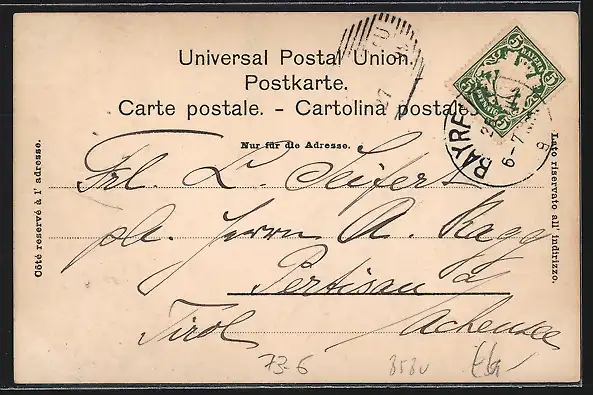 Universal Postal Union.
Postkarte.
Carte postale. - Cartolina postale.
Nur für die Adresse.
Côté reservé à l' adresse.
Lato riservato all' indirizzo.
BAYERN
5
5
5
5
BAYRE
6-7
Frl. L. Seifert
Herrn A. Ragg
Pertisau a/
Tirol Achensee
73-6